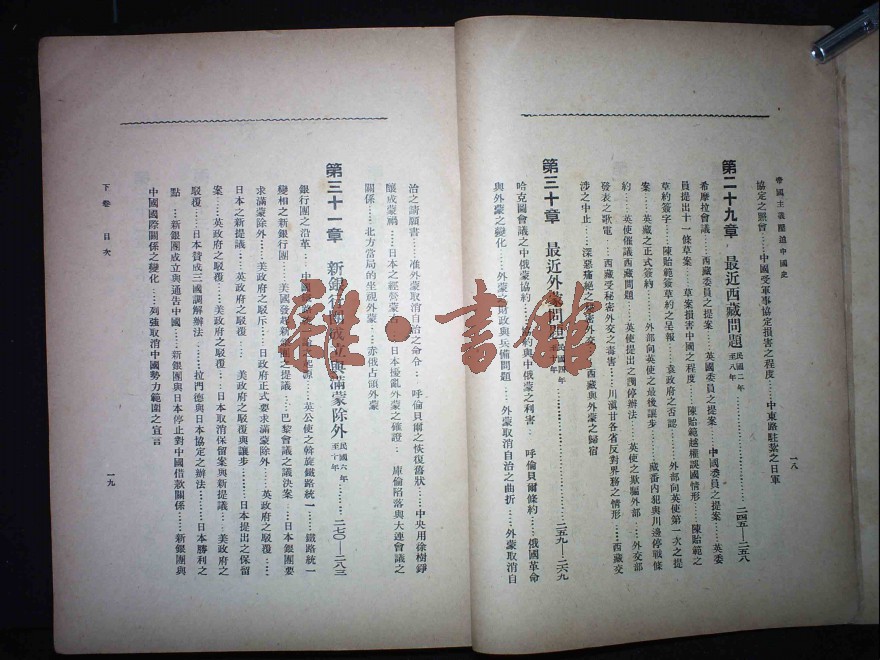 帝國主義壓迫中國史
一八
協定之照會……中國受軍事協定損害之程度……中東路駐紮之日軍
第二十九章 最近西藏問題 民國二年至八年……二四五—二五八
希摩拉會議……西藏委員之提案……英國委員之提案……中國委員之提案……英委
員提出十一條草案……草案損害中國之程度……陳貽範越權誤國情形……陳貽範之
草約簽字……陳貽範簽草約之呈報……袁政府之否認……外部向英使第一次之提
案……英藏之正式簽約……外部向英使之最後讓步……藏番內犯與川邊停戰條
約……英使催議西藏問題……英使提出之調停辦法……英使之欺騙外部……外交部
發表之歌電……西藏受秘密外交之毒害……川滇甘各省反對界務之情形……西藏交
涉之中止……深惡痛絕之秘密外交……西藏與外蒙之歸宿
第三十章 最近外蒙問題 民國四年至十年……二五九—二六九
哈克圖會議之中俄蒙協約……約與中俄蒙之利害……呼倫貝爾條約……俄國革命
與外蒙之變化……外蒙財政與兵備問題……外蒙取消自治之曲折……外蒙取消自
治之請願書……准外蒙取消自治之命令……呼倫貝爾之恢復舊狀……中央用徐樹錚
釀成蒙禍……日本之經營蒙古……日本擾亂外蒙之確證……庫倫陷落與大連會議之
關係……北方當局的坐視外蒙……赤俄占領外蒙
第三十一章 新銀行團成立與滿蒙除外 民國六年至十年……二七〇—二八三
銀行團之沿革……中國鐵路起源……英公使之斡旋鐵路統一……鐵路統一
變相之新銀行團……美國發起新銀團之提議……巴黎會議之議決案……日本銀團要
求滿蒙除外……美政府之駁斥……日政府正式要求滿蒙除外……英政府之駁覆……
日本之新提議……英政府之駁覆……美政府之駁覆與讓步……日本提出之保留
案……英政府之駁覆……美政府之駁覆……日本取消保留案與新提議……美政府之
駁覆……日本贊成三國調解辦法……拉門德與日本協定之辦法……日本勝利之
點……新銀團成立與通告中國……新銀團與日本停止對中國借款關係……新銀團與
中國國際關係之變化……列強取消中國勢力範圍之宣言
下卷 目次
一九